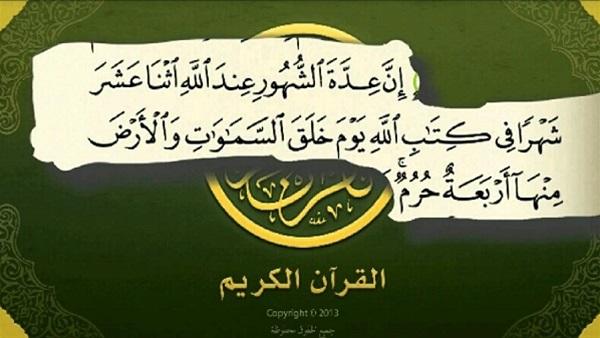 إِنَّ عِدَّةَ ٱلشُّهُورِ عِندَ ٱللَّهِ ٱثْنَا عَشَرَ
شَهْرًا فِى كِتَٰبِ ٱللَّهِ يَوْمَ خَلَقَ ٱلسَّمَٰوَٰتِ وَٱلْأَرْضَ
مِنْهَآ أَرْبَعَةٌ حُرُمٌ ۚ
القرآن الكريم
Copyright © 2013
جميع الحقوق محفوظة